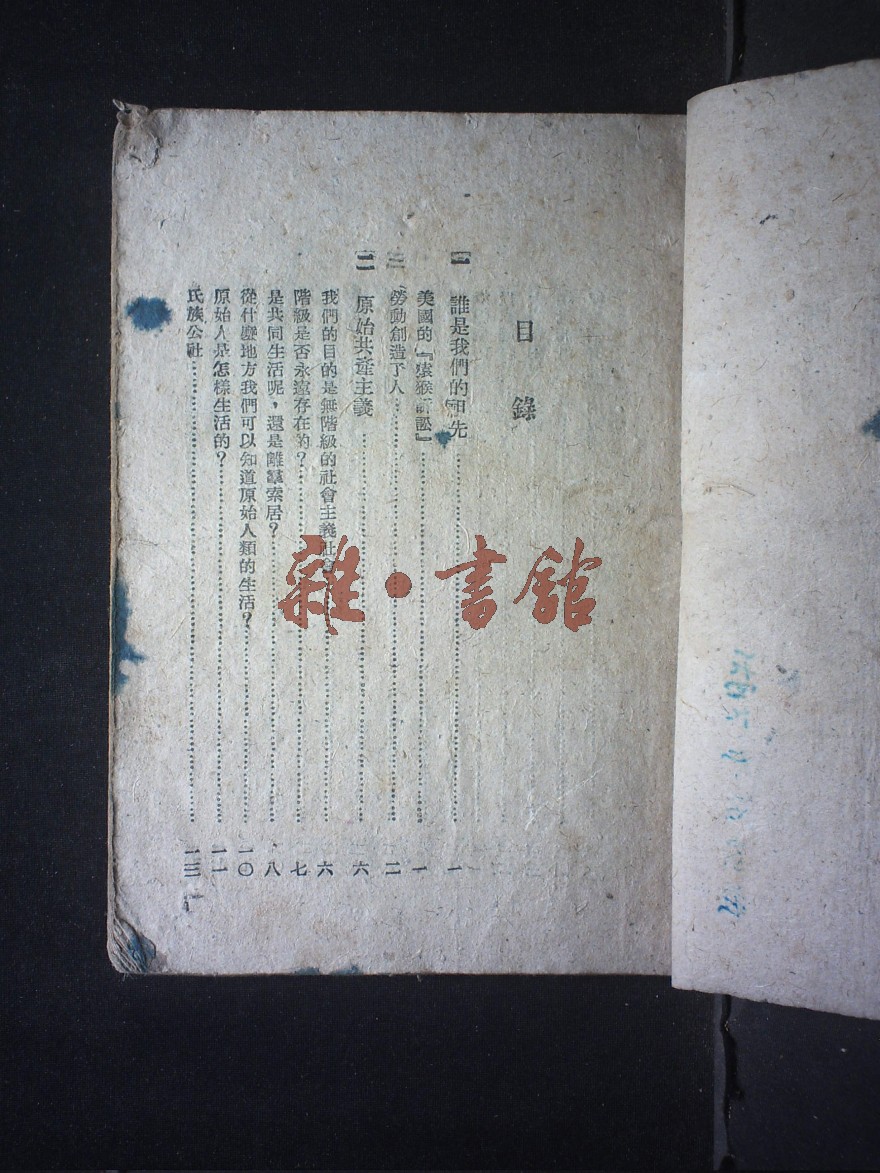 目錄
一 誰是我們的祖先……一
美國的『猿猴訴訟』……一
勞動創造了人……二
二 原始共產主義……六
我們的目的是無階級的社會主義社會……六
階級是否永遠存在的？……七
是共同生活呢，還是離羣索居？……八
從什麼地方我們可以知道原始人類的生活？……一〇
原始人是怎樣生活的？……一一
氏族公社……一三
雜·書館